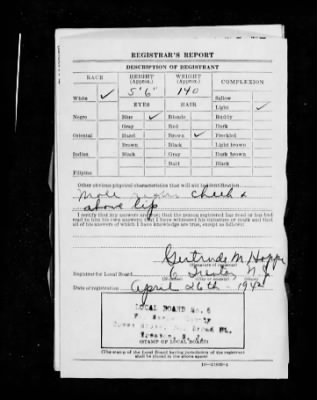 REGISTRAR'S REPORT
DESCRIPTION OF REGISTRANT
RACE HEIGHT (Approx.) WEIGHT (Approx.) COMPLEXION
White ✓ 5' 6" 140 Sallow
EYES HAIR Light ✓
Negro Blue ✓ Blonde Ruddy
Gray Red Dark
Oriental Hazel Brown ✓ Freckled
Brown Black Light brown
Indian Black Gray Dark brown
Bald Black
Filipino
Other obvious physical characteristics that will aid in identification
Mole cheek &
above lip
I certify that my answers are true; that the person registered has read or has had
read to him his own answers; that I have witnessed his signature or mark and that
all of his answers of which I have knowledge are true, except as follows:
Gertrude M.
(Signature of registrar)
Registrar for Local Board 6 Trenton N. J.
Date of registration April 26th - 1942
LOCAL BOARD No. 6
County
Broad St.
Trenton, N. J.
(STAMP OF LOCAL BOARD)
(The stamp of the Local Board having jurisdiction of the registrant
shall be placed in the above space)